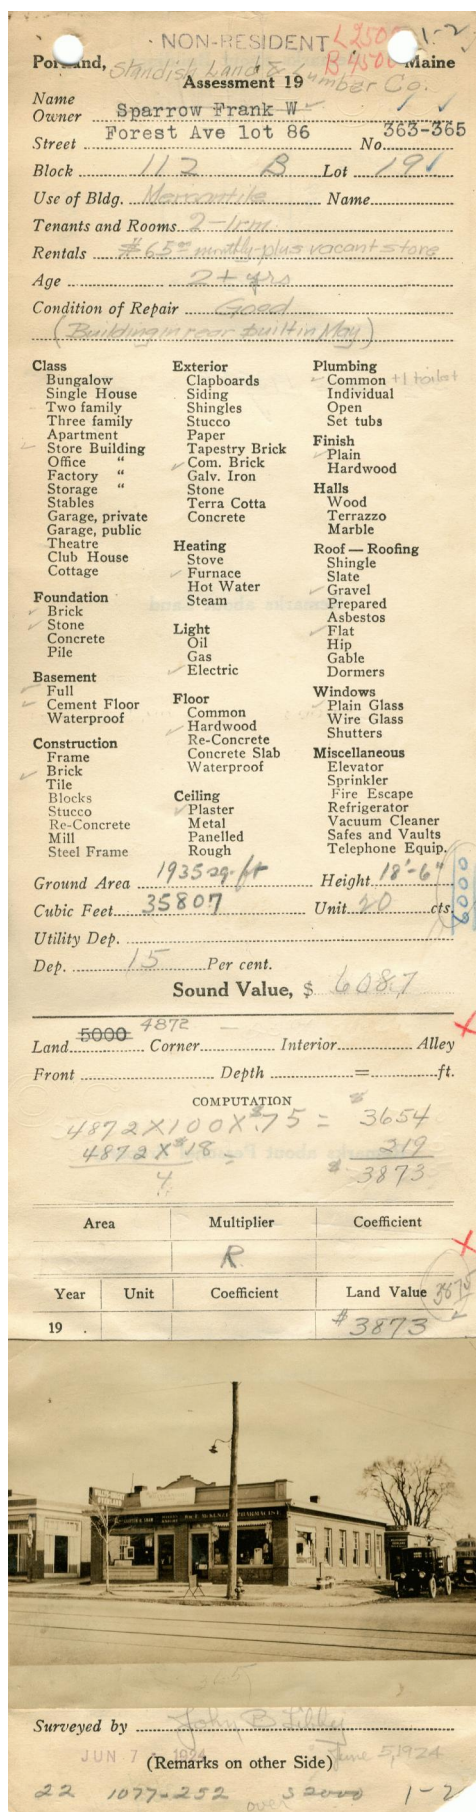 NON-RESIDENT L2500 1-2
Portland, B4500 Maine
Standish Land & Lumber Co.
Assessment 19
Name
Owner Sparrow Frank W
Street Forest Ave lot 86 No. 363-365
Block 112 B Lot 19
Use of Bldg. Mercantile Name
Tenants and Rooms 2-1rm
Rentals $65 monthly-plus vacant store
Age 2+ yrs
Condition of Repair Good
(Building in rear built in May)
Class
Bungalow
Single House
Two family
Three family
Apartment
Store Building
Office "
Factory "
Storage "
Stables
Garage, private
Garage, public
Theatre
Club House
Cottage
Foundation
Brick
Stone
Concrete
Pile
Basement
Full
Cement Floor
Waterproof
Construction
Frame
Brick
Tile
Blocks
Stucco
Re-Concrete
Mill
Steel Frame
Exterior
Clapboards
Siding
Shingles
Stucco
Paper
Tapestry Brick
Com. Brick
Galv. Iron
Stone
Terra Cotta
Concrete
Heating
Stove
Furnace
Hot Water
Steam
Light
Oil
Gas
Electric
Floor
Common
Hardwood
Re-Concrete
Concrete Slab
Waterproof
Ceiling
Plaster
Metal
Panelled
Rough
Plumbing
Common +1 toilet
Individual
Open
Set tubs
Finish
Plain
Hardwood
Halls
Wood
Terrazzo
Marble
Roof — Roofing
Shingle
Slate
Gravel
Prepared
Asbestos
Flat
Hip
Gable
Dormers
Windows
Plain Glass
Wire Glass
Shutters
Miscellaneous
Elevator
Sprinkler
Fire Escape
Refrigerator
Vacuum Cleaner
Safes and Vaults
Telephone Equip.
Ground Area 1935 sq. ft Height 18'-6"
Cubic Feet 35807 Unit 20 cts.
Utility Dep.
Dep. 15 Per cent.
Sound Value, $ 6087
Land 5000 4872 Corner Interior Alley
Front Depth = ft.
COMPUTATION
4872 X 100 X $.75 = $3654
4872 X $.18 = 219
4 $3873
Area Multiplier Coefficient
R
Year Unit Coefficient Land Value 3875
19 . $3873
Surveyed by John B Libby
JUN 7 1924 June 5, 1924
(Remarks on other Side)
22 1077-252 1-2
over